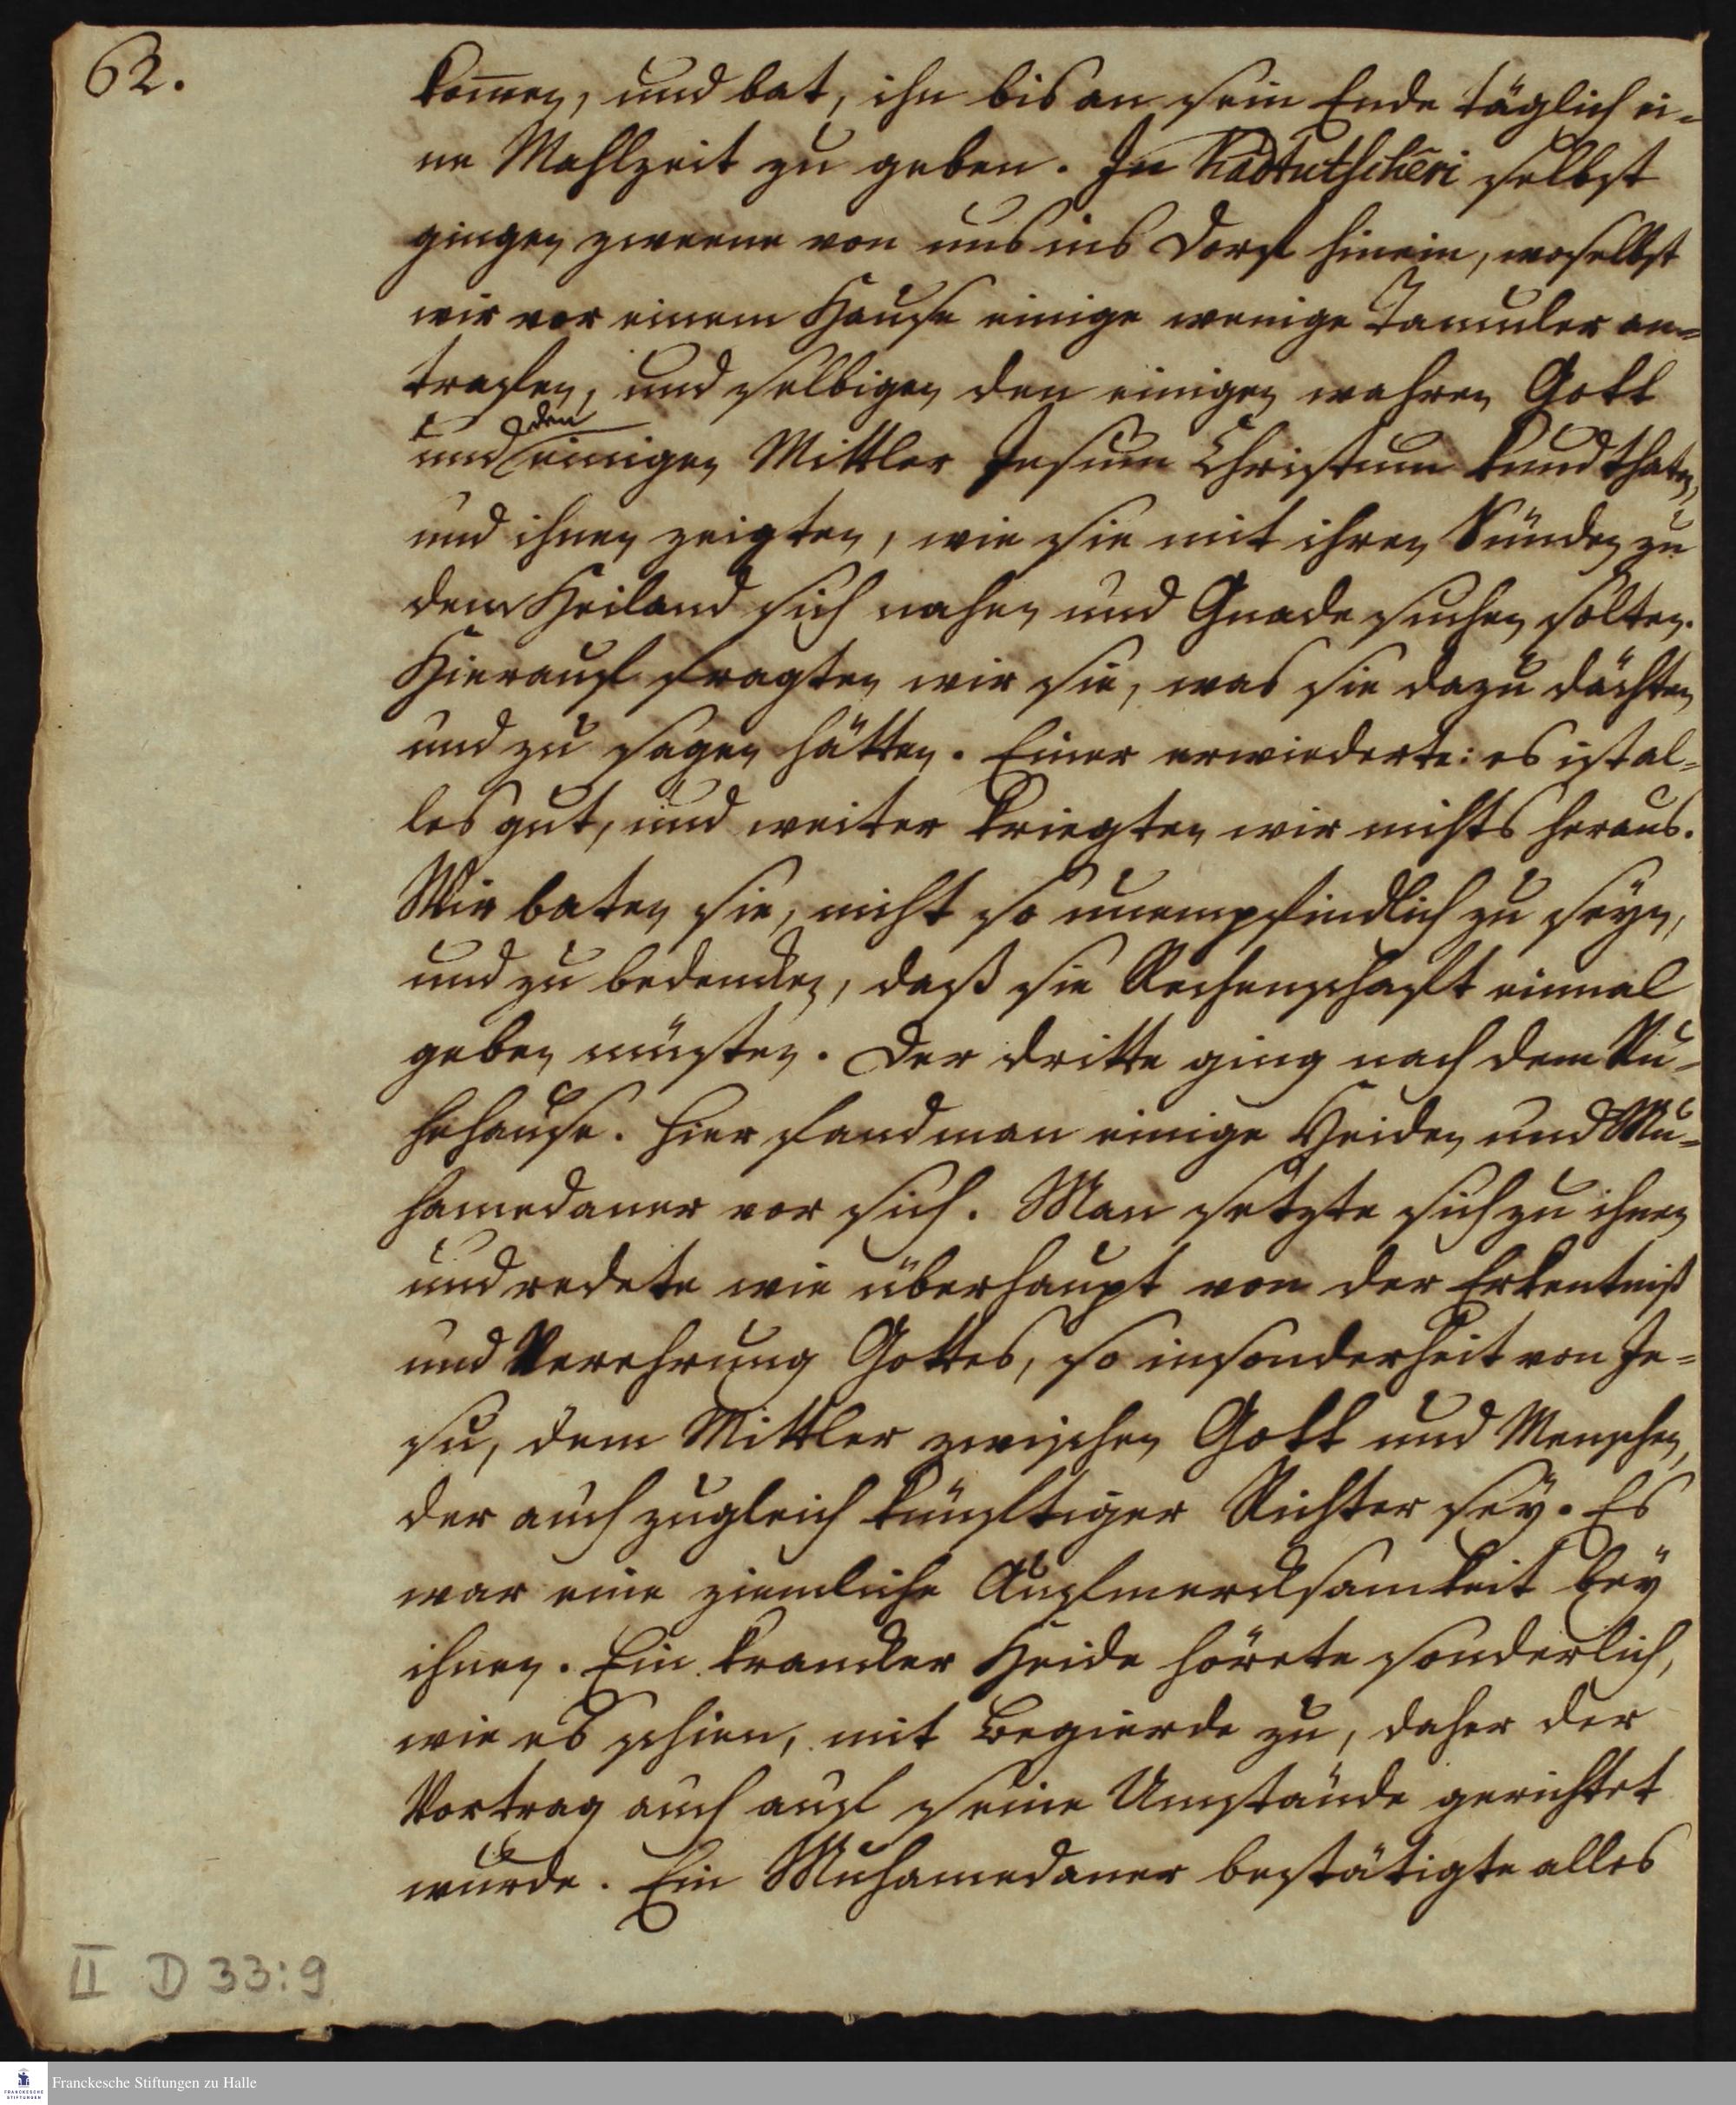 62.
kom̅en, und bat, ihn bis an sein Ende täglich ei-
ne Mahlzeit zu geben. In Kādtutschēri selbst
gingen zweene von uns ins Dorf hinein, woselbst
wir vor einem Hause einige wenige Tamuler an-
traffen, und selbigen den einigen wahren Gott
den
und einigen Mittler Jesum Christum kund thaten,
und ihnen zeigten, wie sie mit ihren Sünden zu
dem Heiland sich nahen und Gnade suchen solten.
Hierauf fragten wir sie, was sie dazu dächten
und zu sagen hätten. Einer erwiederte: es ist al-
les gut, und weiter kriegten wir nichts heraus.
Wir baten sie, nicht so unempfindlich zu seyn,
und zu bedencken, daß sie Rechenschaft einmal
geben müsten. Der dritte ging nach dem Ru-
hehause. Hier fand man einige Heiden und Mu-
hamedaner vor sich. Man setzte sich zu ihnen
und redete wie überhaupt von der Erkentniß
und Verehrung Gottes, so insonderheit von Je-
su, dem Mittler zwischen Gott und Menschen,
der auch zugleich künftiger Richter sey. Es
war eine ziemliche Aufmercksamkeit bey
ihnen. Ein krancker Heide hörete sonderlich,
wie es schien, mit Begierde zu, daher der
Vortrag auch auf seine Umstände gerichtet
wurde. Ein Muhamedaner bestätigte alles
II D 33:9
FRANCKESCHE
STIFTUNGEN
Franckesche Stiftungen zu Halle